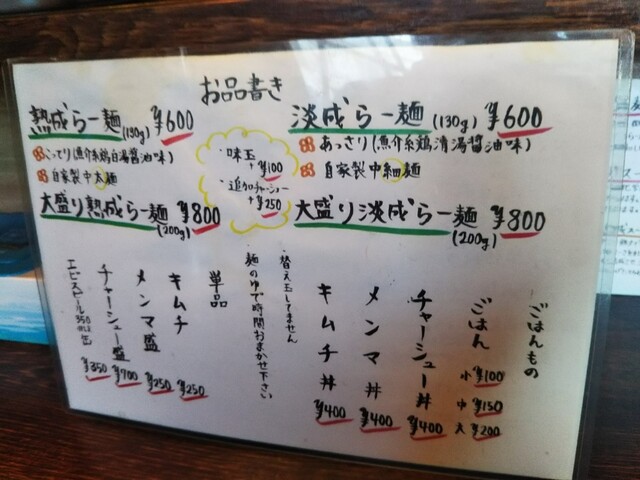 お品書き
熟成らー麺(130g) ¥600
こってり(魚介系鶏白湯醤油味)
自家製中太麺
大盛り熟成らー麺 ¥800
(200g)
・味玉
+¥100
・追加チャーシュー
+¥250
淡成らー麺(130g) ¥600
あっさり(魚介系鶏清湯醤油味)
自家製中細麺
大盛り淡成らー麺 ¥800
(200g)
ごはんもの
ごはん
小 ¥100
中 ¥150
大 ¥200
チャーシュー丼 ¥400
メンマ丼 ¥400
キムチ丼 ¥400
・替え玉してません
・麺のゆで時間おまかせ下さい
単品
キムチ ¥250
メンマ盛 ¥250
チャーシュー盛 ¥700
エビスビール350ml缶 ¥350